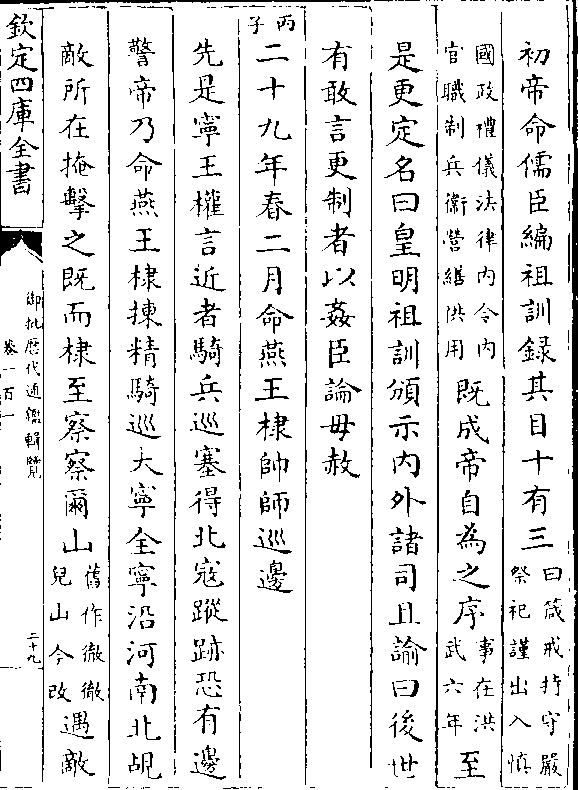 初帝命儒臣編祖訓錄其目十有三曰箴戒持守嚴祭祀謹出入慎
國政禮儀法律內令內官職制兵衛營繕供用既成帝自為之序事在洪武六年至
是更定名曰皇明祖訓頒示內外諸司且諭曰後世
有敢言更制者以姦臣論毋赦
丙子二十九年春二月命燕王棣帥師巡邊
先是寧王權言近者騎兵巡塞得北寇蹤跡恐有邊
警帝乃命燕王棣揀精騎巡大寧全寧沿河南北覘
敵所在掩擊之既而棣至察察爾山舊作徹徹兒山今改遇敵
欽定四庫全書
御批歷代通鑑輯覽
卷一百一
二十九